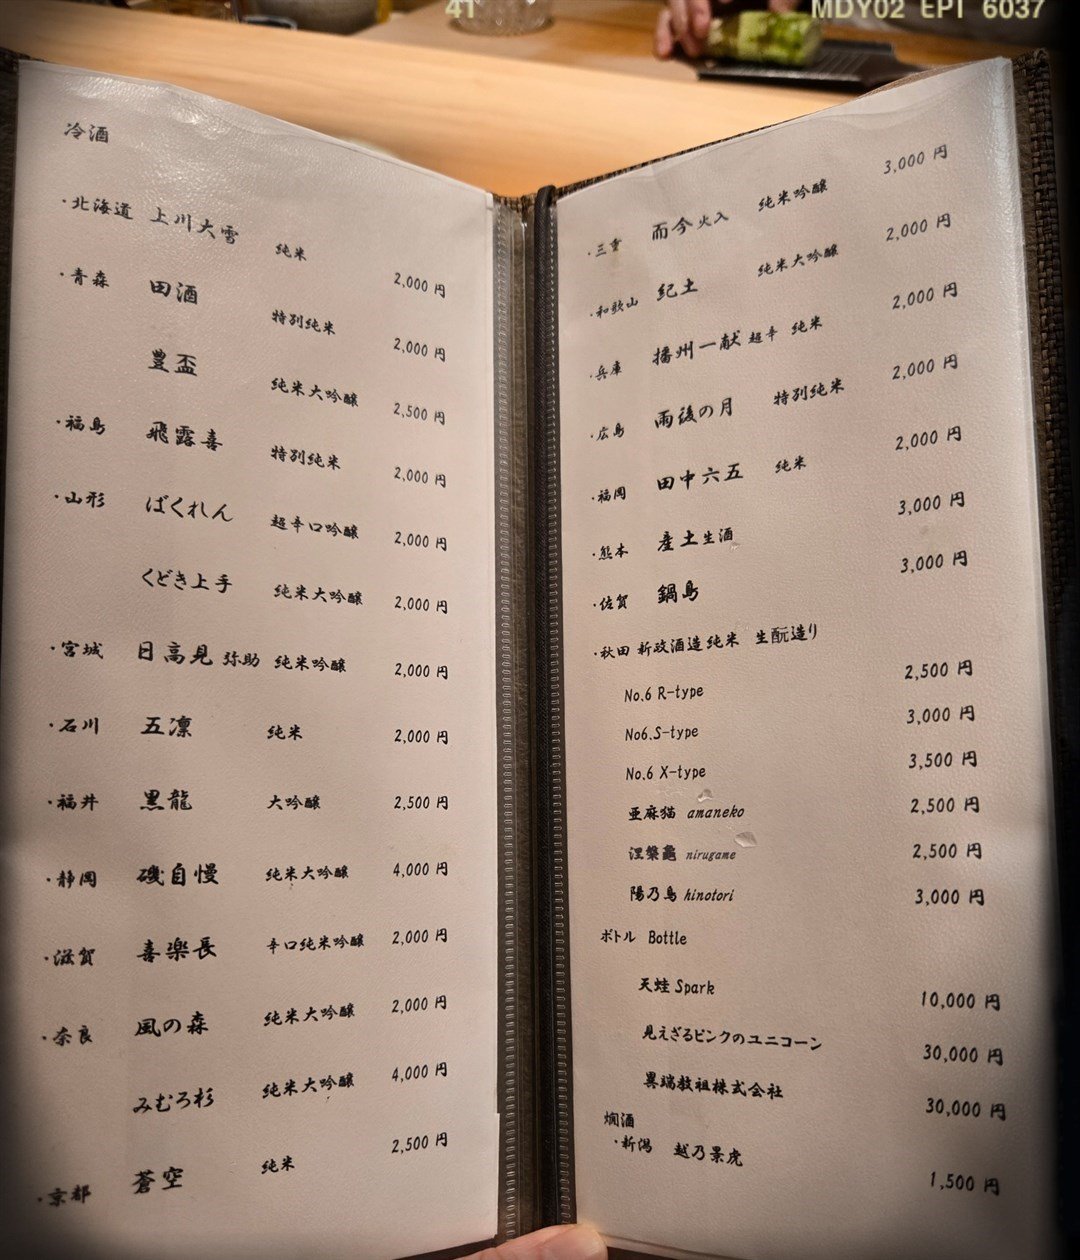 41
MDY02 EPI 6037
冷酒
・北海道 上川大雪 純米 2,000 円
・青森 田酒 特別純米 2,000 円
豊盃 純米大吟醸 2,500 円
・福島 飛露喜 特別純米 2,000 円
・山形 ばくれん 超辛口吟醸 2,000 円
くどき上手 純米大吟醸 2,000 円
・宮城 日高見 弥助 純米吟醸 2,000 円
・石川 五凛 純米 2,000 円
・福井 黒龍 大吟醸 2,500 円
・静岡 磯自慢 純米大吟醸 4,000 円
・滋賀 喜楽長 辛口純米吟醸 2,000 円
・奈良 風の森 純米大吟醸 2,000 円
みむろ杉 純米大吟醸 4,000 円
・京都 蒼空 純米 2,500 円
・三重 而今 火入 純米吟醸 3,000 円
・和歌山 紀土 純米大吟醸 2,000 円
・兵庫 播州一献 超辛 純米 2,000 円
・広島 雨後の月 特別純米 2,000 円
・福岡 田中六五 純米 2,000 円
・熊本 産土生酒 3,000 円
・佐賀 鍋島 3,000 円
・秋田 新政酒造 純米 生酛造り
No.6 R-type 2,500 円
No6.S-type 3,000 円
No.6 X-type 3,500 円
亜麻猫 amaneko 2,500 円
涅槃龜 nirugame 2,500 円
陽乃鳥 hinotori 3,000 円
ボトル Bottle
天蛙 Spark 10,000 円
見えざるピンクのユニコーン 30,000 円
異端教祖株式会社 30,000 円
燗酒
・新潟 越乃景虎 1,500 円